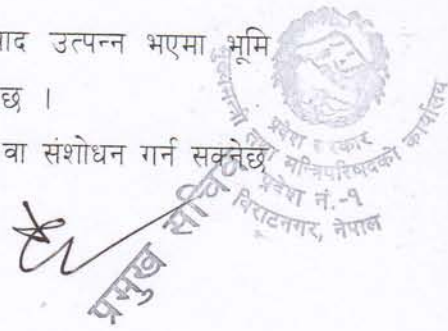 ाद उत्पन्न भएमा भूमि
छ ।
वा संशोधन गर्न सक्नेछ
प्रदेश सरकार
मन्त्रिपरिषद्को कार्यालय
प्रदेश नं.-१
विराटनगर, नेपाल
प्रमुख सचिव